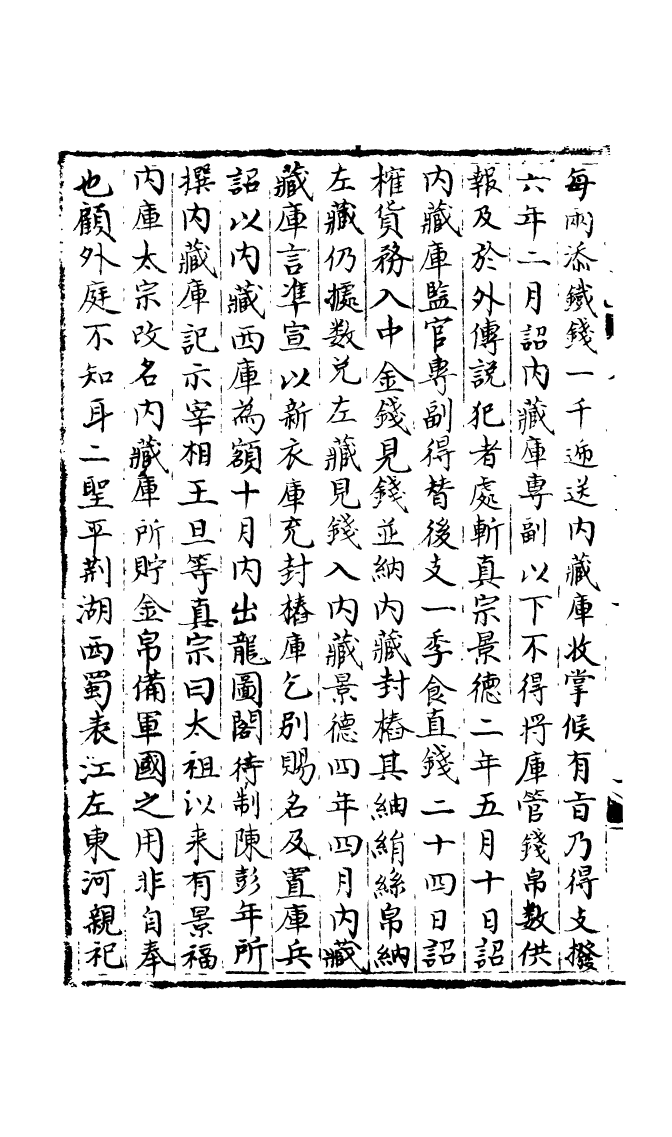 每兩添鐵錢一千逓送内藏庫收掌候有㫖乃得支撥
六年二月詔内藏庫専副以下不得將庫管錢帛数供
報及於外傳說犯者處斬真宗景德二年五月十日詔
内藏庫監官専副得替後支一季食直錢二十四日詔
榷貨務入中金錢見錢並納内藏封樁其紬絹絲帛納
左藏仍據数兑左藏見錢入内藏景德四年四月内藏
藏庫言凖宣以新衣庫充封樁庫乞别賜名及置庫兵
詔以内藏西庫為額十月内出龍圖閣待制陳彭年所
撰内藏庫記示宰相王旦等真宗曰太祖以来有景福
内庫太宗改名内藏庫所貯金帛備軍國之用非自奉
也顧外庭不知耳二聖平荆湖西蜀表江左東河親祀